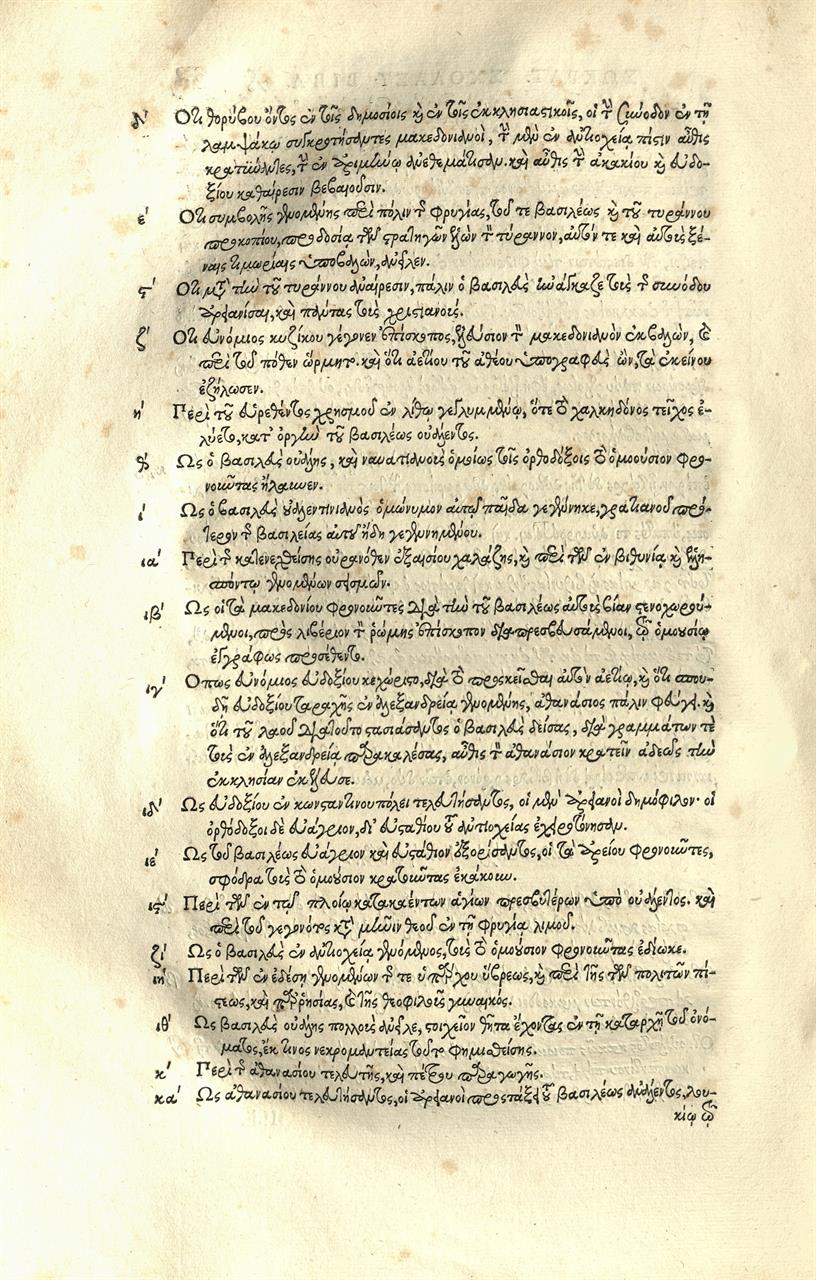 δ' Ὅτι θορύβου ὄντος ἐν τοῖς δημοσίοις καὶ ἐν τοῖς ἐκκλησιαστικοῖς, οἱ τὴν σύνοδον ἐν τῇ
λαμψάκῳ συγκροτήσαντες μακεδονιανοὶ, τὴν μὲν ἐν ἀντιοχείᾳ πίστιν αὖθις
κρατύναντες, τὴν ἐν ἀριμίνῳ ἀνεθεμάτισαν. καὶ αὖθις τὴν ἀκακίου καὶ εὐδο-
ξίου καθαίρεσιν βεβαιοῦσιν.
ε' Ὅτι συμβολῆς γενομένης περὶ πόλιν τῆς φρυγίας, τοῦ τε βασιλέως καὶ τοῦ τυράννου
προκοπίου, προδοσίᾳ τῶν στρατηγῶν ἑλὼν τὸν τύραννον, αὐτόν τε καὶ αὐτοὺς ξέ-
ναις τιμωρίαις ὑποβαλὼν, ἀνεῖλεν.
ϛ' Ὅτι μετὰ τὴν τοῦ τυράννου ἀναίρεσιν, πάλιν ὁ βασιλεὺς ἠνάγκαζε τοὺς τῆς συνόδου
ἀρειανίσαι, καὶ πάντας τοὺς χριστιανούς.
ζ' Ὅτι εὐνόμιος κυζίκου γέγονεν ἐπίσκοπος, ἐλεύσιον τὸν μακεδονιανὸν ἐκβαλὼν, καὶ
περὶ τοῦ πόθεν ὥρμητο. καὶ ὅτι ἀετίου τοῦ ἀθέου ὑπογραφεὺς ὢν, τὰ ἐκείνου
ἐζήλωσεν.
η' Περὶ τοῦ εὑρεθέντος χρησμοῦ ἐν λίθῳ γεγλυμμένῳ, ὅτε τὸ χαλκηδόνος τεῖχος ἐ-
λύετο, κατ' ὀργὴν τοῦ βασιλέως οὐάλεντος.
θ' Ὡς ὁ βασιλεὺς οὐάλης, καὶ ναυατιανοὺς ὁμοίως τοῖς ὀρθοδόξοις τὸ ὁμοούσιον φρο-
νοῦντας ἤλαυνεν.
ι' Ὡς ὁ βασιλεὺς οὐαλεντινιανὸς ὁμώνυμον αὐτῷ παῖδα γεγέννηκε, γρατιανοῦ πρό-
τερον τῆς βασιλείας αὐτοῦ ἤδη γεγεννημένου.
ια' Περὶ τῆς κατενεχθείσης οὐρανόθεν ἐξαισίου χαλάζης, καὶ περὶ τῶν ἐν βιθυνίᾳ καὶ ἑλλη-
σπόντῳ γενομένων σεισμῶν.
ιβ' Ὡς οἱ τὰ μακεδονίου φρονοῦντες διὰ τὴν τοῦ βασιλέως εἰς αὐτοὺς βίαν στενοχωρού-
μενοι, πρὸς λιβέριον τὸν ῥώμης ἐπίσκοπον διαπρεσβευσάμενοι, τῷ ὁμοουσίῳ
ἐγγράφως προσέθεντο.
ιγ' Ὅπως εὐνόμιος εὐδοξίου κεχώριστο, διὰ τὸ προσκεῖσθαι αὐτὸν ἀετίῳ, καὶ ὅτι σπου-
δῇ εὐδοξίου ταραχῆς ἐν ἀλεξανδρείᾳ γενομένης, ἀθανάσιος πάλιν φεύγει. καὶ
ὅτι τοῦ λαοῦ διὰ τοῦτο στασιάσαντος ὁ βασιλεὺς δείσας, διὰ γραμμάτων τέ
τοὺς ἐν ἀλεξανδρείᾳ παρακαλέσας, αὖθις τὸν ἀθανάσιον κρατεῖν ἀδεῶς τὴν
ἐκκλησίαν ἐκέλευσε.
ιδ' Ὡς εὐδοξίου ἐν κωνσταντινουπόλει τελευτήσαντος, οἱ μὲν ἀρειανοὶ δημόφιλον· οἱ
ὀρθόδοξοι δὲ εὐάγριον, δι' εὐσταθίου τοῦ ἀντιοχείας ἐχειροτόνησαν.
ιε' Ὡς τοῦ βασιλέως εὐάγριον καὶ εὐστάθιον ἐξορίσαντος, οἱ τὰ ἀρείου φρονοῦντες,
σφόδρα τοὺς τὸ ὁμοούσιον κρατοῦντας ἐκάκουν.
ιϛ' Περὶ τῶν ἐν τῷ πλοίῳ κατακαέντων ἁγίων πρεσβυτέρων ὑπὸ οὐάλεντος. καὶ
περὶ τοῦ γεγονότος κατὰ μῆνιν θεοῦ ἐν τῇ φρυγίᾳ λιμοῦ.
ζι' Ὡς ὁ βασιλεὺς ἐν ἀντιοχείᾳ γενόμενος, τοὺς τὸ ὁμοούσιον φρονοῦντας ἐδίωκε.
ιη' Περὶ τῶν ἐν ἐδέσῃ γενομένων τῆς τε ὑπάρχου ὕβρεως, καὶ περὶ τῆς τῶν πολιτῶν πί-
στεως, καὶ παρρησίας, καὶ τῆς θεοφιλοῦς γυναικός.
ιθ' Ὡς βασιλεὺς οὐάλης πολλοὺς ἀνεῖλε, στοιχεῖον θῆτα ἔχοντας ἐν τῇ καταρχῇ τοῦ ὀνό-
ματος, ἔκ τινος νεκρομαντείας τοῦτο φημισθείσης.
κ' Περὶ τῆς ἀθανασίου τελευτῆς, καὶ πέτρου παραγωγῆς.
κα' Ὡς ἀθανασίου τελευτήσαντος, οἱ ἀρειανοὶ προστάξει τοῦ βασιλέως οὐάλεντος, λου-
κίῳ τῷ